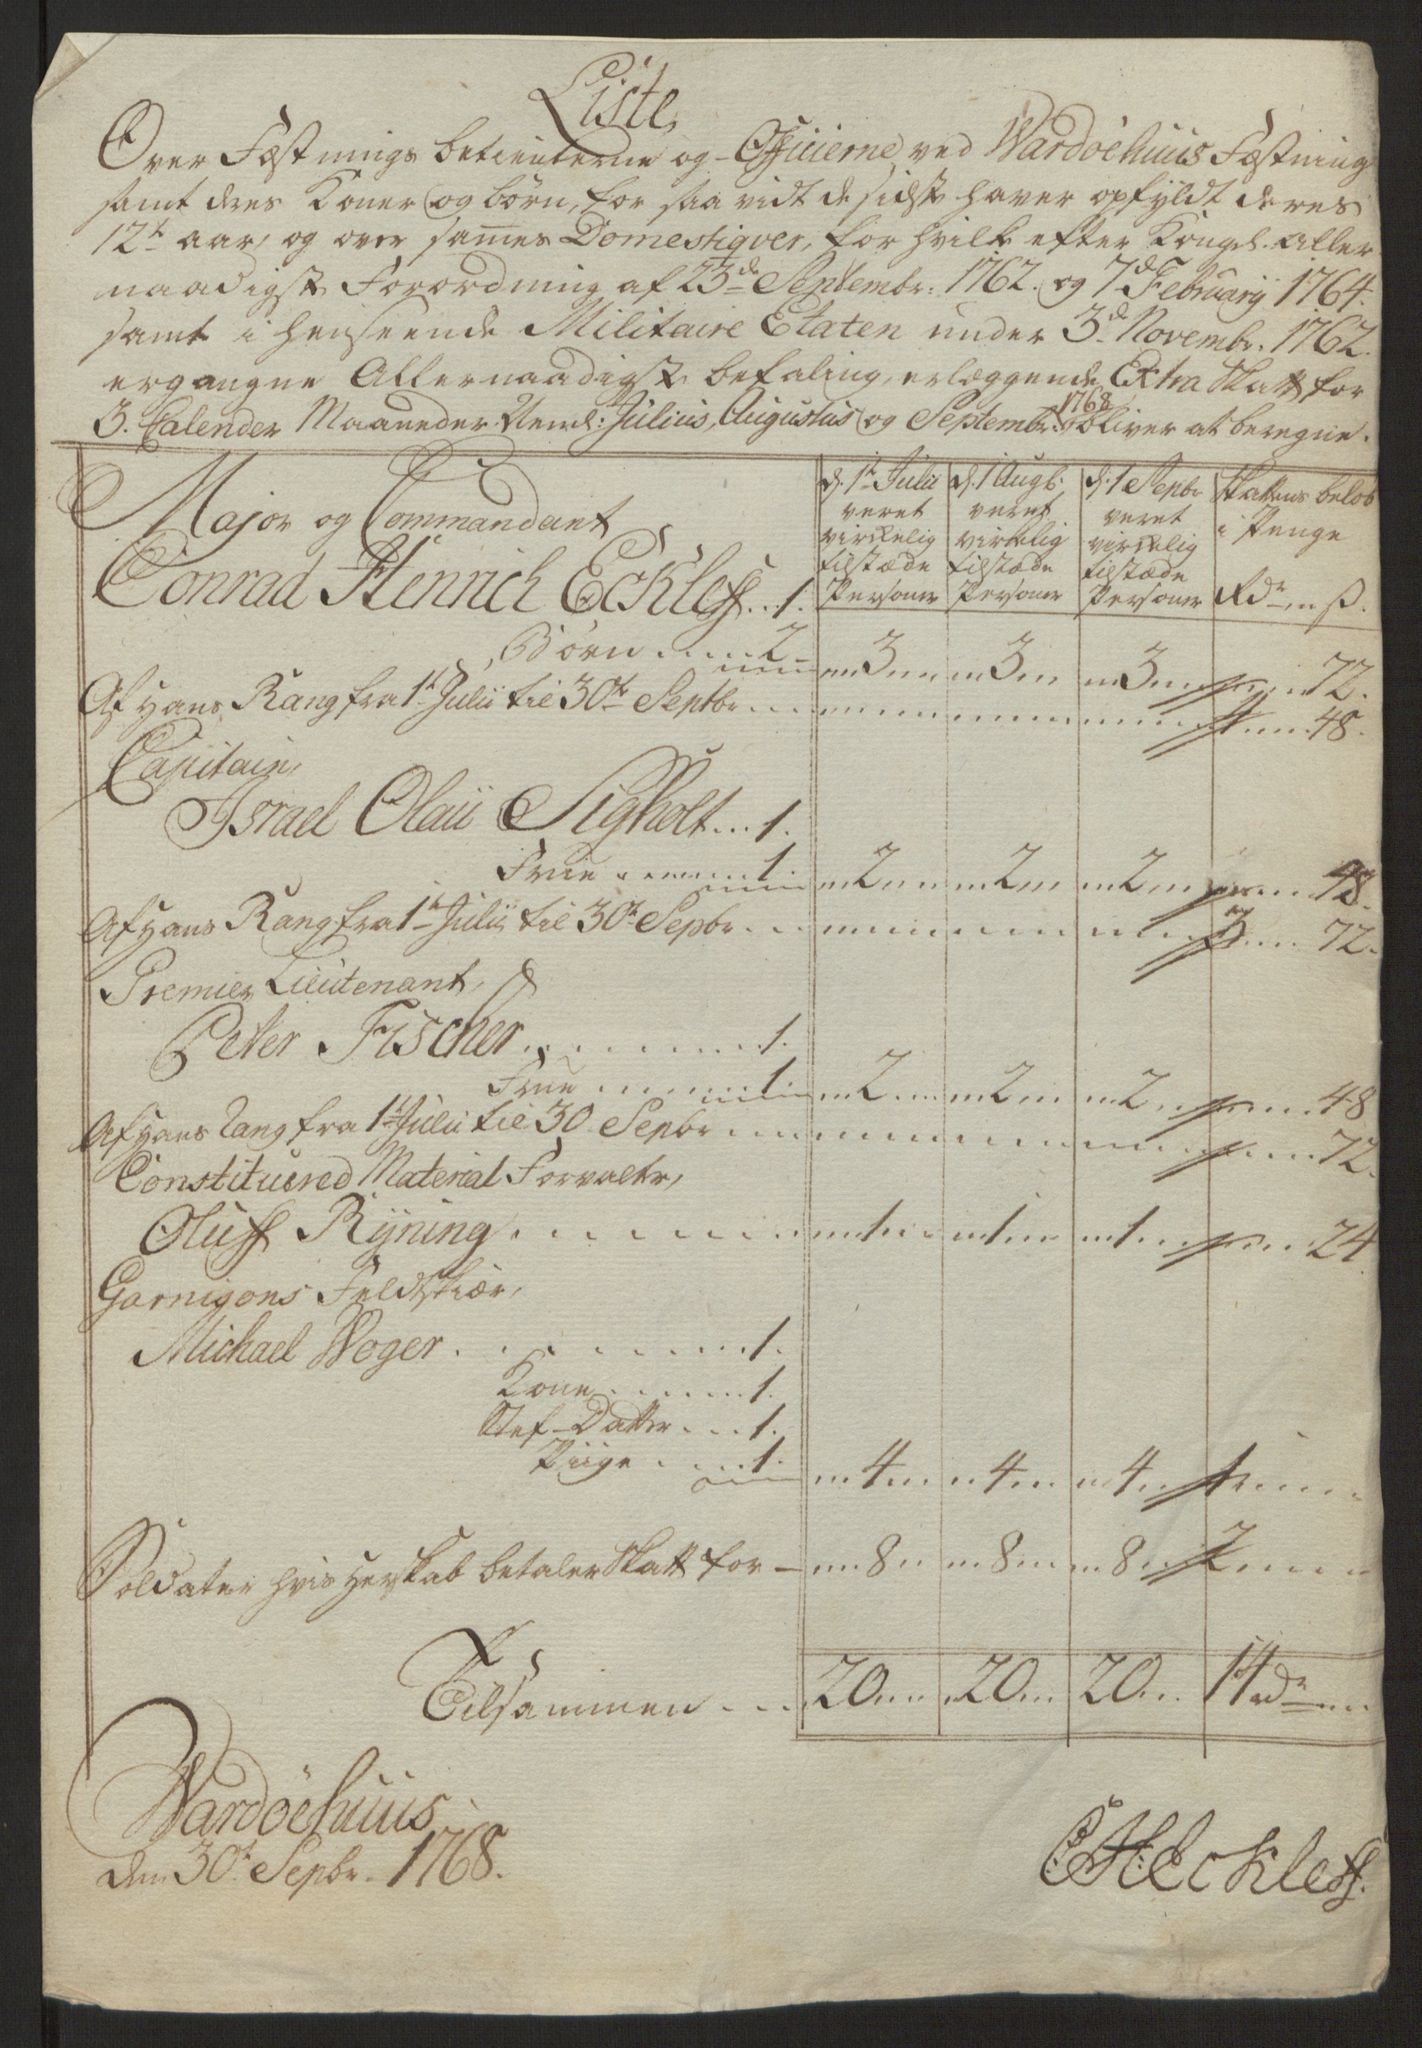 Liste,
Over Fæstnings betienterne og Officierne, ved Wardöehuus Fæstning
samt deres Koner og börn, for saa vidt de sidste haver opfyldt deres
12te aar, og over sammes Domestiqver, for hvilke efter Kongel. Aller
naadigst Forordning af 23de Septembr: 1762. og 7d Februarij 1764.
samt i henseende Militaire Etaten under 3d Novembr. 1762.
ergangne Allernaadigste befaling, erlæggende Extra Skatt for
3. Calender Maaneder Neml: Julius, Augustus og Septembr: 1768 bliver at beregne.
d. 1te Julii veret virkelig tilstæde Personer
d. 1 Augb: veret virkelig tilstæde Personer
d. 1 Sepbr veret virkelig tilstæde Personer
Skattens beløb i Penge
Rdr ... ß.
Major og Commandant
Conrad Henrich Eckleff ... 1.
Börn ..... 2 ... 3 ... 3 ... 3 ... 72.
Af Hans Rang fra 1te Julii til 30te Septbr ... 4 ... 48.
Capitain,
Israel Olaii Sigholt ... 1.
Frue ....... 1. ... 2 ... 2 ... 2 ... 48.
Af Hans Rang fra 1te Julii til 30te Sepbr ... 3 ... 72.
Premier Lieutenant,
Peter Fischer ......... 1.
Frue ....... 1. ... 2 ... 2 ... 2 ... 48
Af Hans Rang fra 1te Julii til 30 Sepbr ... 72.
Constituered Material Forvalter,
Oluff Ryning ... 1 ... 1 ... 1 ... 24
Garnisons Feldskiær,
Michael Woger ......... 1.
Kone ...... 1.
Stef-Datter ... 1.
Piige ..... 1. ... 4 ... 4 ... 4 ... 1
Soldater hvis Herskab betaler Skatt for — 8 ... 8 ... 8 ... 2
Tilsammen ... 20 ... 20 ... 20 ... 14 rdr
Wardöehuus
den 30te Sepbr. 1768.
C:H:Eckleff.